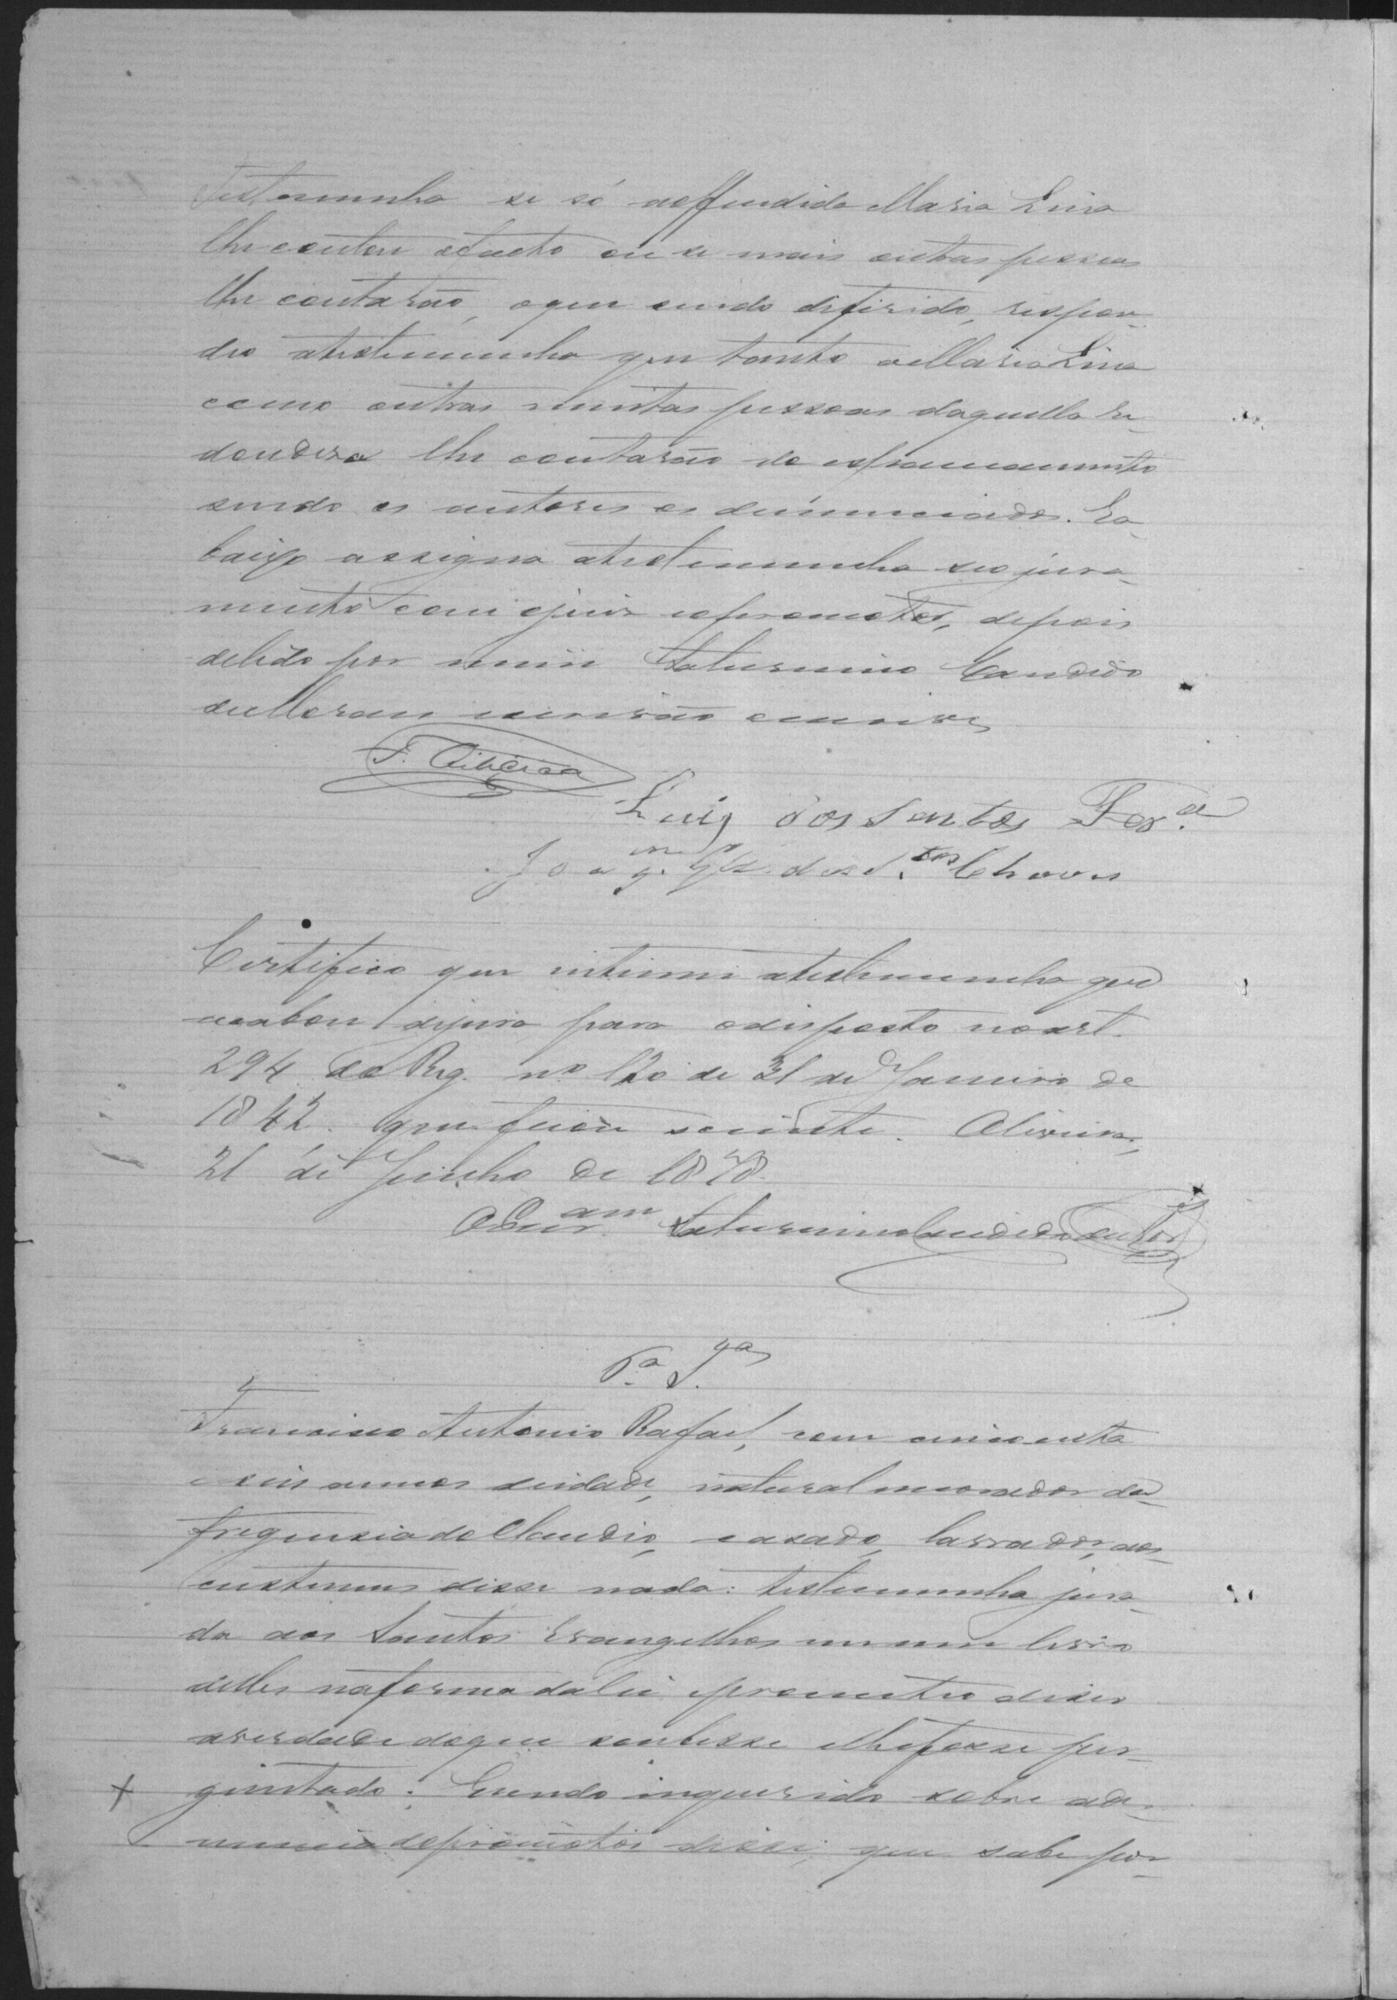 Testemunha se só aoffendida Maria Lina
lhe contou ofacto ou se mais outras pessoas
lhe contarão, oque sendo diferido, respon-
deo atestemunha que tanto a Maria Lina
como outras muitas pessoas daquella re-
dondeza lhe contarão do espancamento
sendo os autores os denunciados. E a
baixo assigna atestemunha seo jura-
mento com ojuiz epromotor, depois
delido por mim Saturnino Candido
escrivão oescrevi
T. Ribeiro
Luiz dos Santos Fer.ª
Joaq.m Glz. dos S.tos Chaves
Certifico que intimei atestemunha que
acabou dejurar para odisposto noart.
294 do Reg. nº 120 de 31 de Janeiro de
1842. que ficou sciente. Oliveira,
21 de Junho de 1878.
O Escr.am Saturnino Candido
6.ª T.ª
Francisco Antonio Rafael, com cincoenta
eseis annos deidade, natural emorador da
freguezia do Claudio, casado, lavrador, aos
custumes disse nada: testemunha jura-
da aos Santos Evangelhos em um livro
delles naforma dalei eprometeo dizer
averdade doque soubesse elhefosse per-
guntado: Esendo inquerido sobre ade-
nuncia dopromotor disse, que sabe por